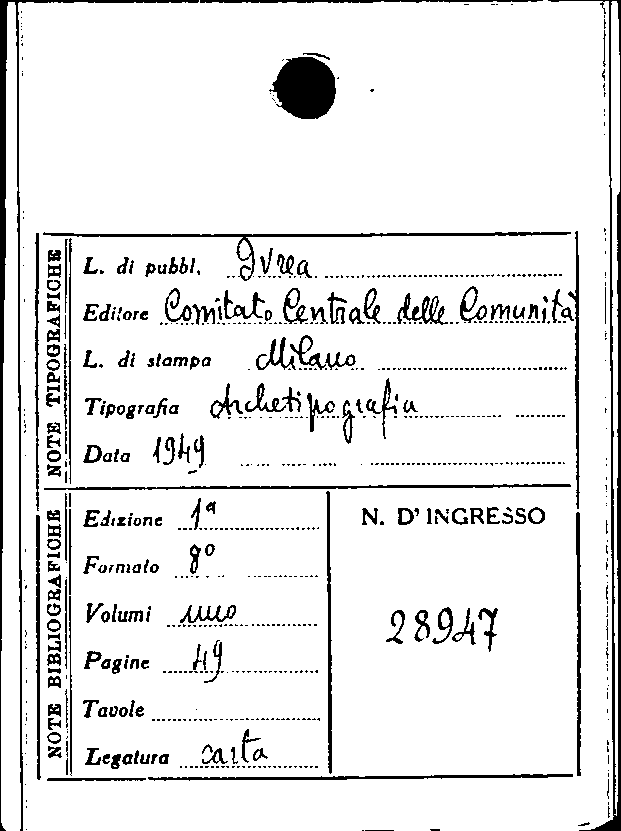 NOTE TIPOGRAFICHE
L. di pubbl. Ivrea
Editore Comitato Centrale delle Comunità
L. di stampa Milano
Tipografia Archetipografia
Data 1949
NOTE BIBLIOGRAFICHE
Edizione 1ª
Formato 8º
Volumi uno
Pagine 49
Tavole
Legatura carta
N. D'INGRESSO
28947